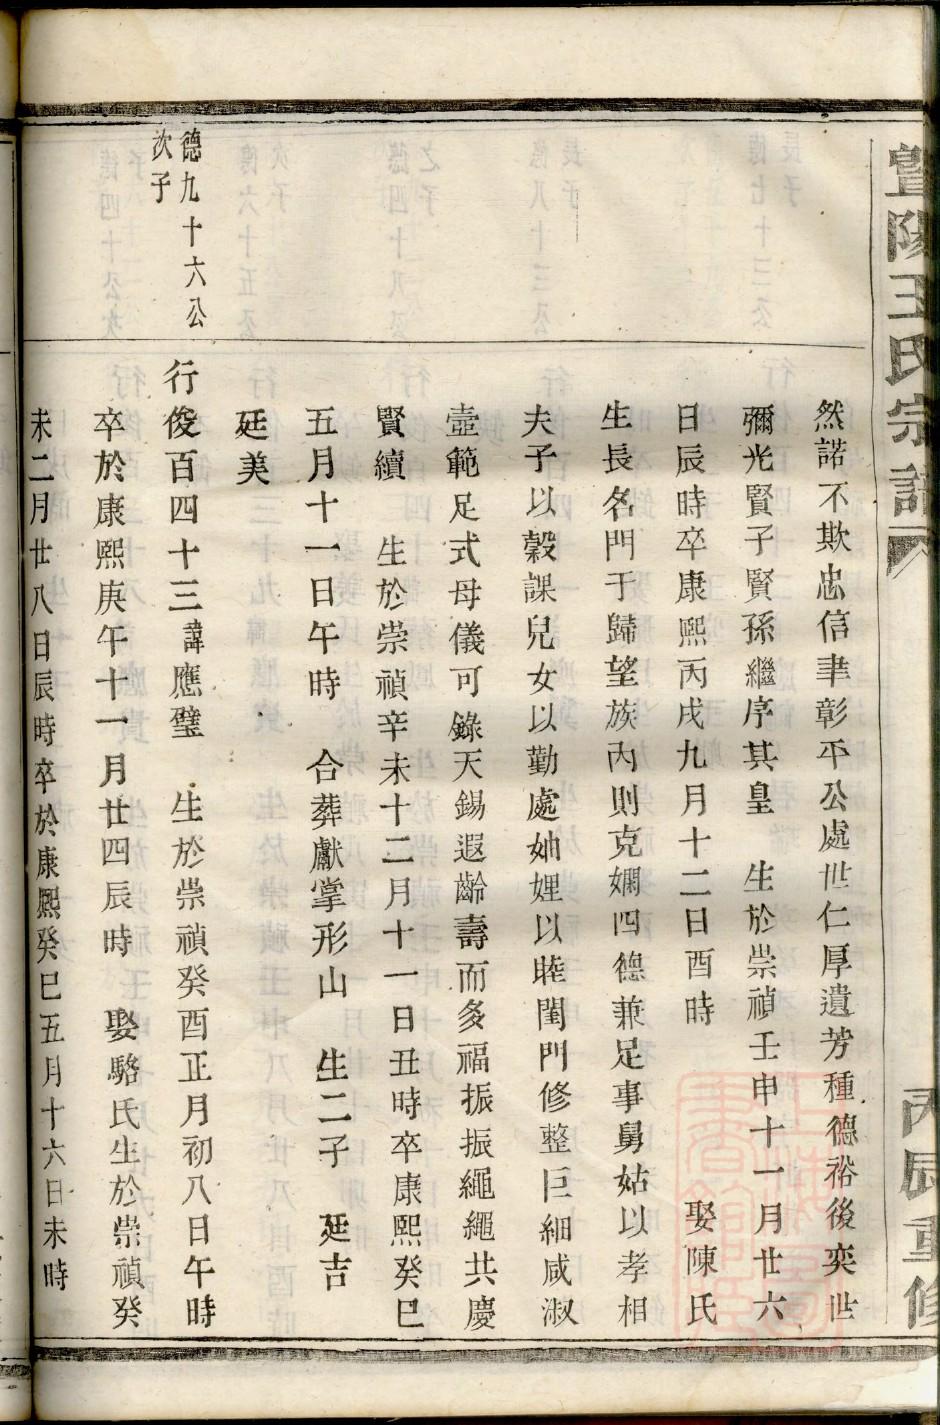 暨陽王氏宗譜
丙辰重修
然諾不欺忠信聿彰平公處世仁厚遺芳種德裕後奕世
彌光賢子賢孫繼序其皇 生於崇禎壬申十一月廿六
日辰時卒康熙丙戌九月十二日酉時 娶陳氏
生長名門于歸望族內則克嫻四德兼足事舅姑以孝相
夫子以穀課兒女以勤處妯娌以睦閨門修整巨細咸淑
壼範足式母儀可錄天錫遐齡壽而多福振振繩繩共慶
賢續 生於崇禎辛未十二月十一日丑時卒康熙癸巳
五月十一日午時 合葬獻掌形山 生二子 廷吉
廷美
德九十六公
次子
行俊百四十三諱應璧 生於崇禎癸酉正月初八日午時
卒於康熙庚午十一月廿四辰時 娶駱氏生於崇禎癸
未二月廿八日辰時卒於康熙癸巳五月十六日未時